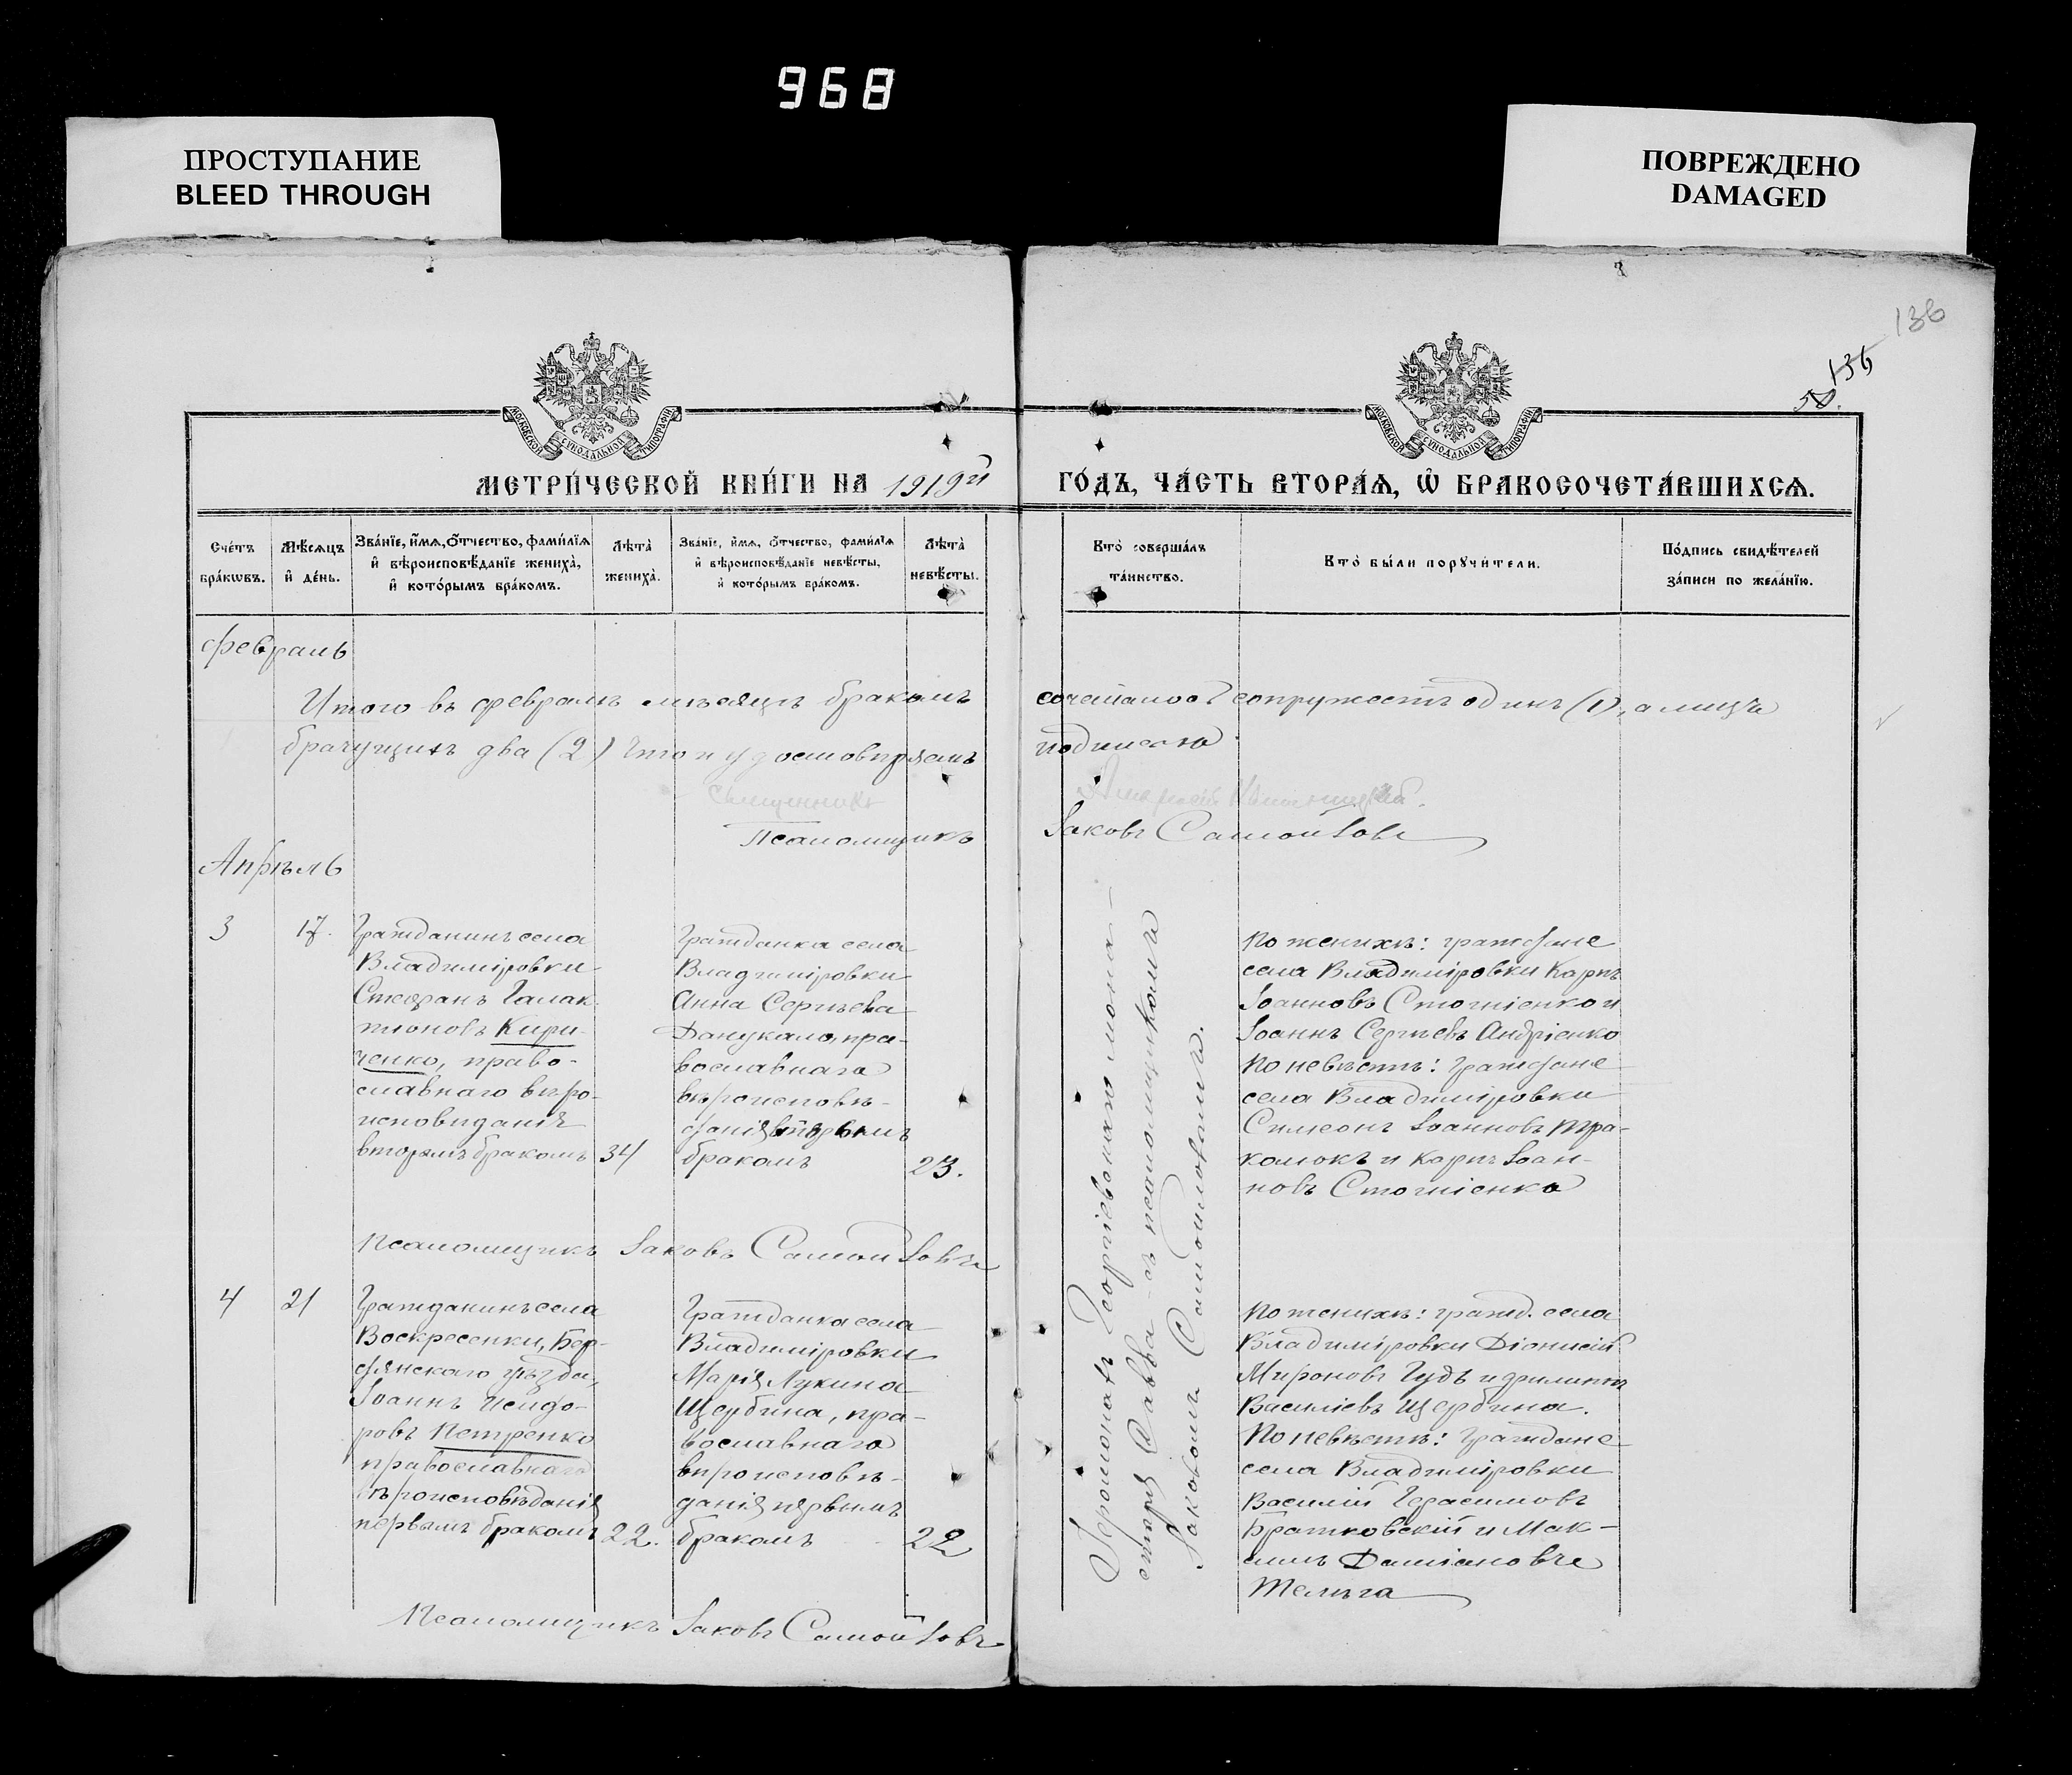 968
ПРОСТУПАНИЕ
BLEED THROUGH
ПОВРЕЖДЕНО
DAMAGED
136
136
50.
МОСКОВСКОЙ СУНОДАЛЬНОЙ ТИПОГРАФІИ
МОСКОВСКОЙ СУНОДАЛЬНОЙ ТИПОГРАФІИ
МЕТРИ́ЧЕСКОЙ КНИ́ГИ НА 1919й ГО́ДЪ, ЧА́СТЬ ВТОРА́Ѧ, Ѽ БРАКОСОЧЕТА́ВШИХСѦ.
Сче́тъ
бра́кѡвъ.
Мѣ́сѧцъ
и҆ де́нь.
Зва́нїе, и҆́мѧ, ѻ҆́тчество, фами́лїѧ
и҆ вѣроисповѣ́данїе жениха̀,
и҆ кото́рымъ бра́комъ.
Лѣ́та̀
жениха̀.
Зва́нїе, и҆́мѧ, ѻ҆́тчество, фами́лїѧ
и҆ вѣроисповѣ́данїе невѣ́сты,
и҆ кото́рымъ бра́комъ.
Лѣ́та̀
невѣ́сты.
Кто̀ соверша́лъ
та́инство.
Кто̀ бы́ли порꙋчи́тели.
По́дпись свидѣ́телей
за́писи по жела́нїю.
Февраль
Итого въ февралѣ мѣсяцѣ бракомъ сочеталось супружествъ одинъ (1), а лицъ
брачущихъ два (2) Что и удостовѣряемъ подписью
Священникъ
Псаломщикъ Іаковъ Самойловъ
Апрѣль
3
17.
Гражданинъ села
Владиміровки
Стефанъ Галак-
тіоновъ Кири-
ченко, право-
славнаго вѣро-
исповѣданія
вторымъ бракомъ
34
Гражданка села
Владиміровки
Анна Сергѣева
пра-
вославнаго
вѣроисповѣ-
данія
бракомъ
23.
Іеромонахъ Георгіевскаго мона-
стыря Савва съ псаломщикомъ
Іаковомъ Самойловымъ.
По женихѣ: граждане
села Владиміровки Карпъ
Іоанновъ Стогніенко и
Іоаннъ Сергѣевъ Андріенко
По невѣстѣ: Граждане
села Владиміровки
Симеонъ Іоанновъ
и Карпъ Іоан-
новъ Стогніенко
Псаломщикъ Іаковъ Самойловъ
4
21
Гражданинъ села
Воскресенки, Бер-
дянскаго уѣзда,
Іоаннъ Исидо-
ровъ Петренко
православнаго
вѣроисповѣданія
первымъ бракомъ
22.
Гражданка села
Владиміровки
Марія Лукина
Щербина, пра-
вославнаго
вѣроисповѣ-
данія первымъ
бракомъ
22
По женихѣ: гражд. села
Владиміровки Діонисій
Мироновъ Гудъ и Филиппъ
Василіевъ Щербина.
По невѣстѣ: Граждане
села Владиміровки
Василій Герасимовъ
Братковскій и Мак-
симъ Даміановъ
Телѣга
Псаломщикъ Іаковъ Самойловъ